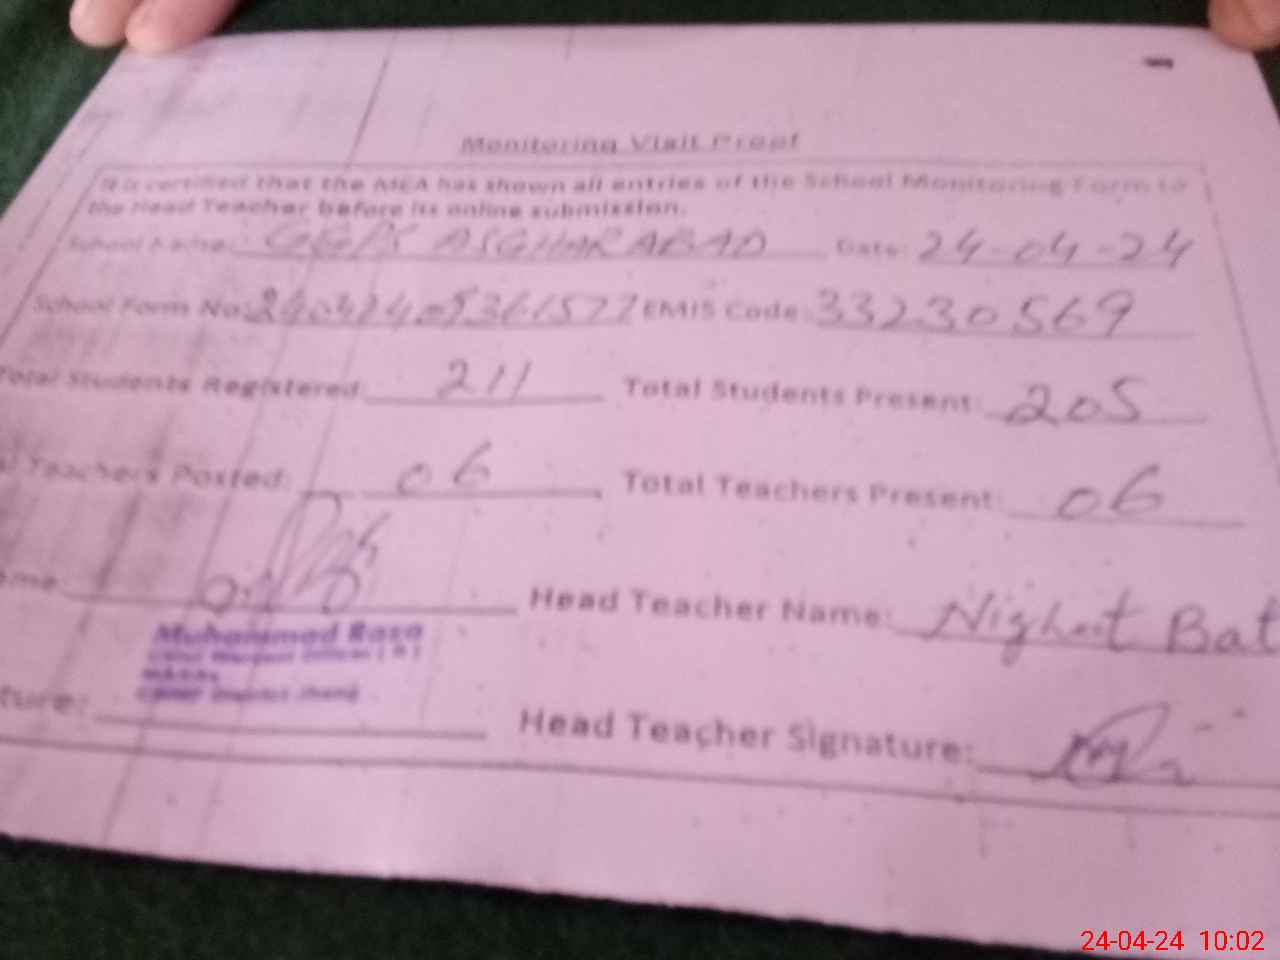 Monitoring Visit Proof
It is certified that the MEA has shown all entries of the School Monitoring Form to
the Head Teacher before its online submission.
School Name: GGPS ASGHAR ABAD Date: 24-04-24
School Form No: EMIS Code: 33230569
Total Students Registered: 211 Total Students Present: 205
Teachers Posted: 06 Total Teachers Present: 06
Head Teacher Name: Nighat Bat
Muhammad Raza
ture: Head Teacher Signature:
24-04-24 10:02